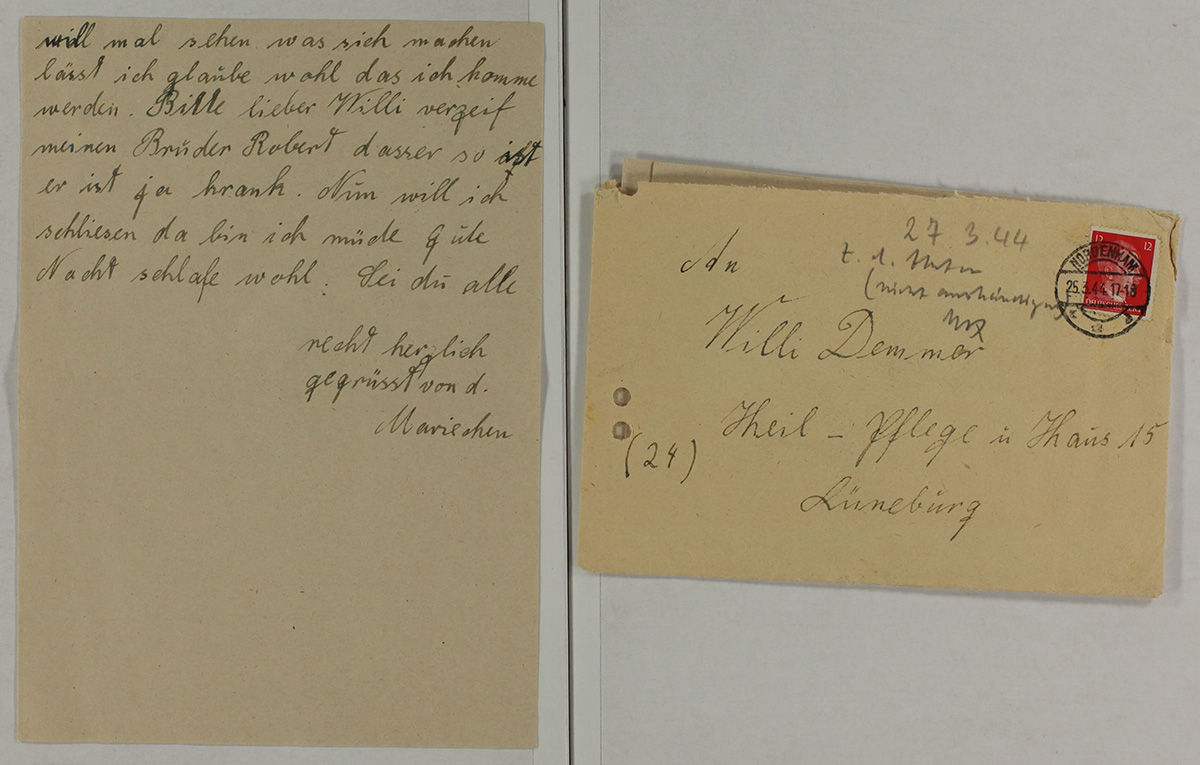 will mal sehen was sich machen
lässt ich glaube wohl das ich komme
werden. Bitte lieber Willi verzeif
meinen Brüder Robert dasser so ist
er ist ja krank. Nün will ich
schliesen da bin ich müde Gute
Nacht schlafe wohl. Sei dü alle
recht herzlich
gegrüsst von d.
Mariechen
27 3.44
z. d. Akten
(nicht aushändigen)
An
Willi Demmer
Heil - Pflege u Haus 15
(24)
Lünebürg
12 12
NORDENHAM
25.3.44.17-18